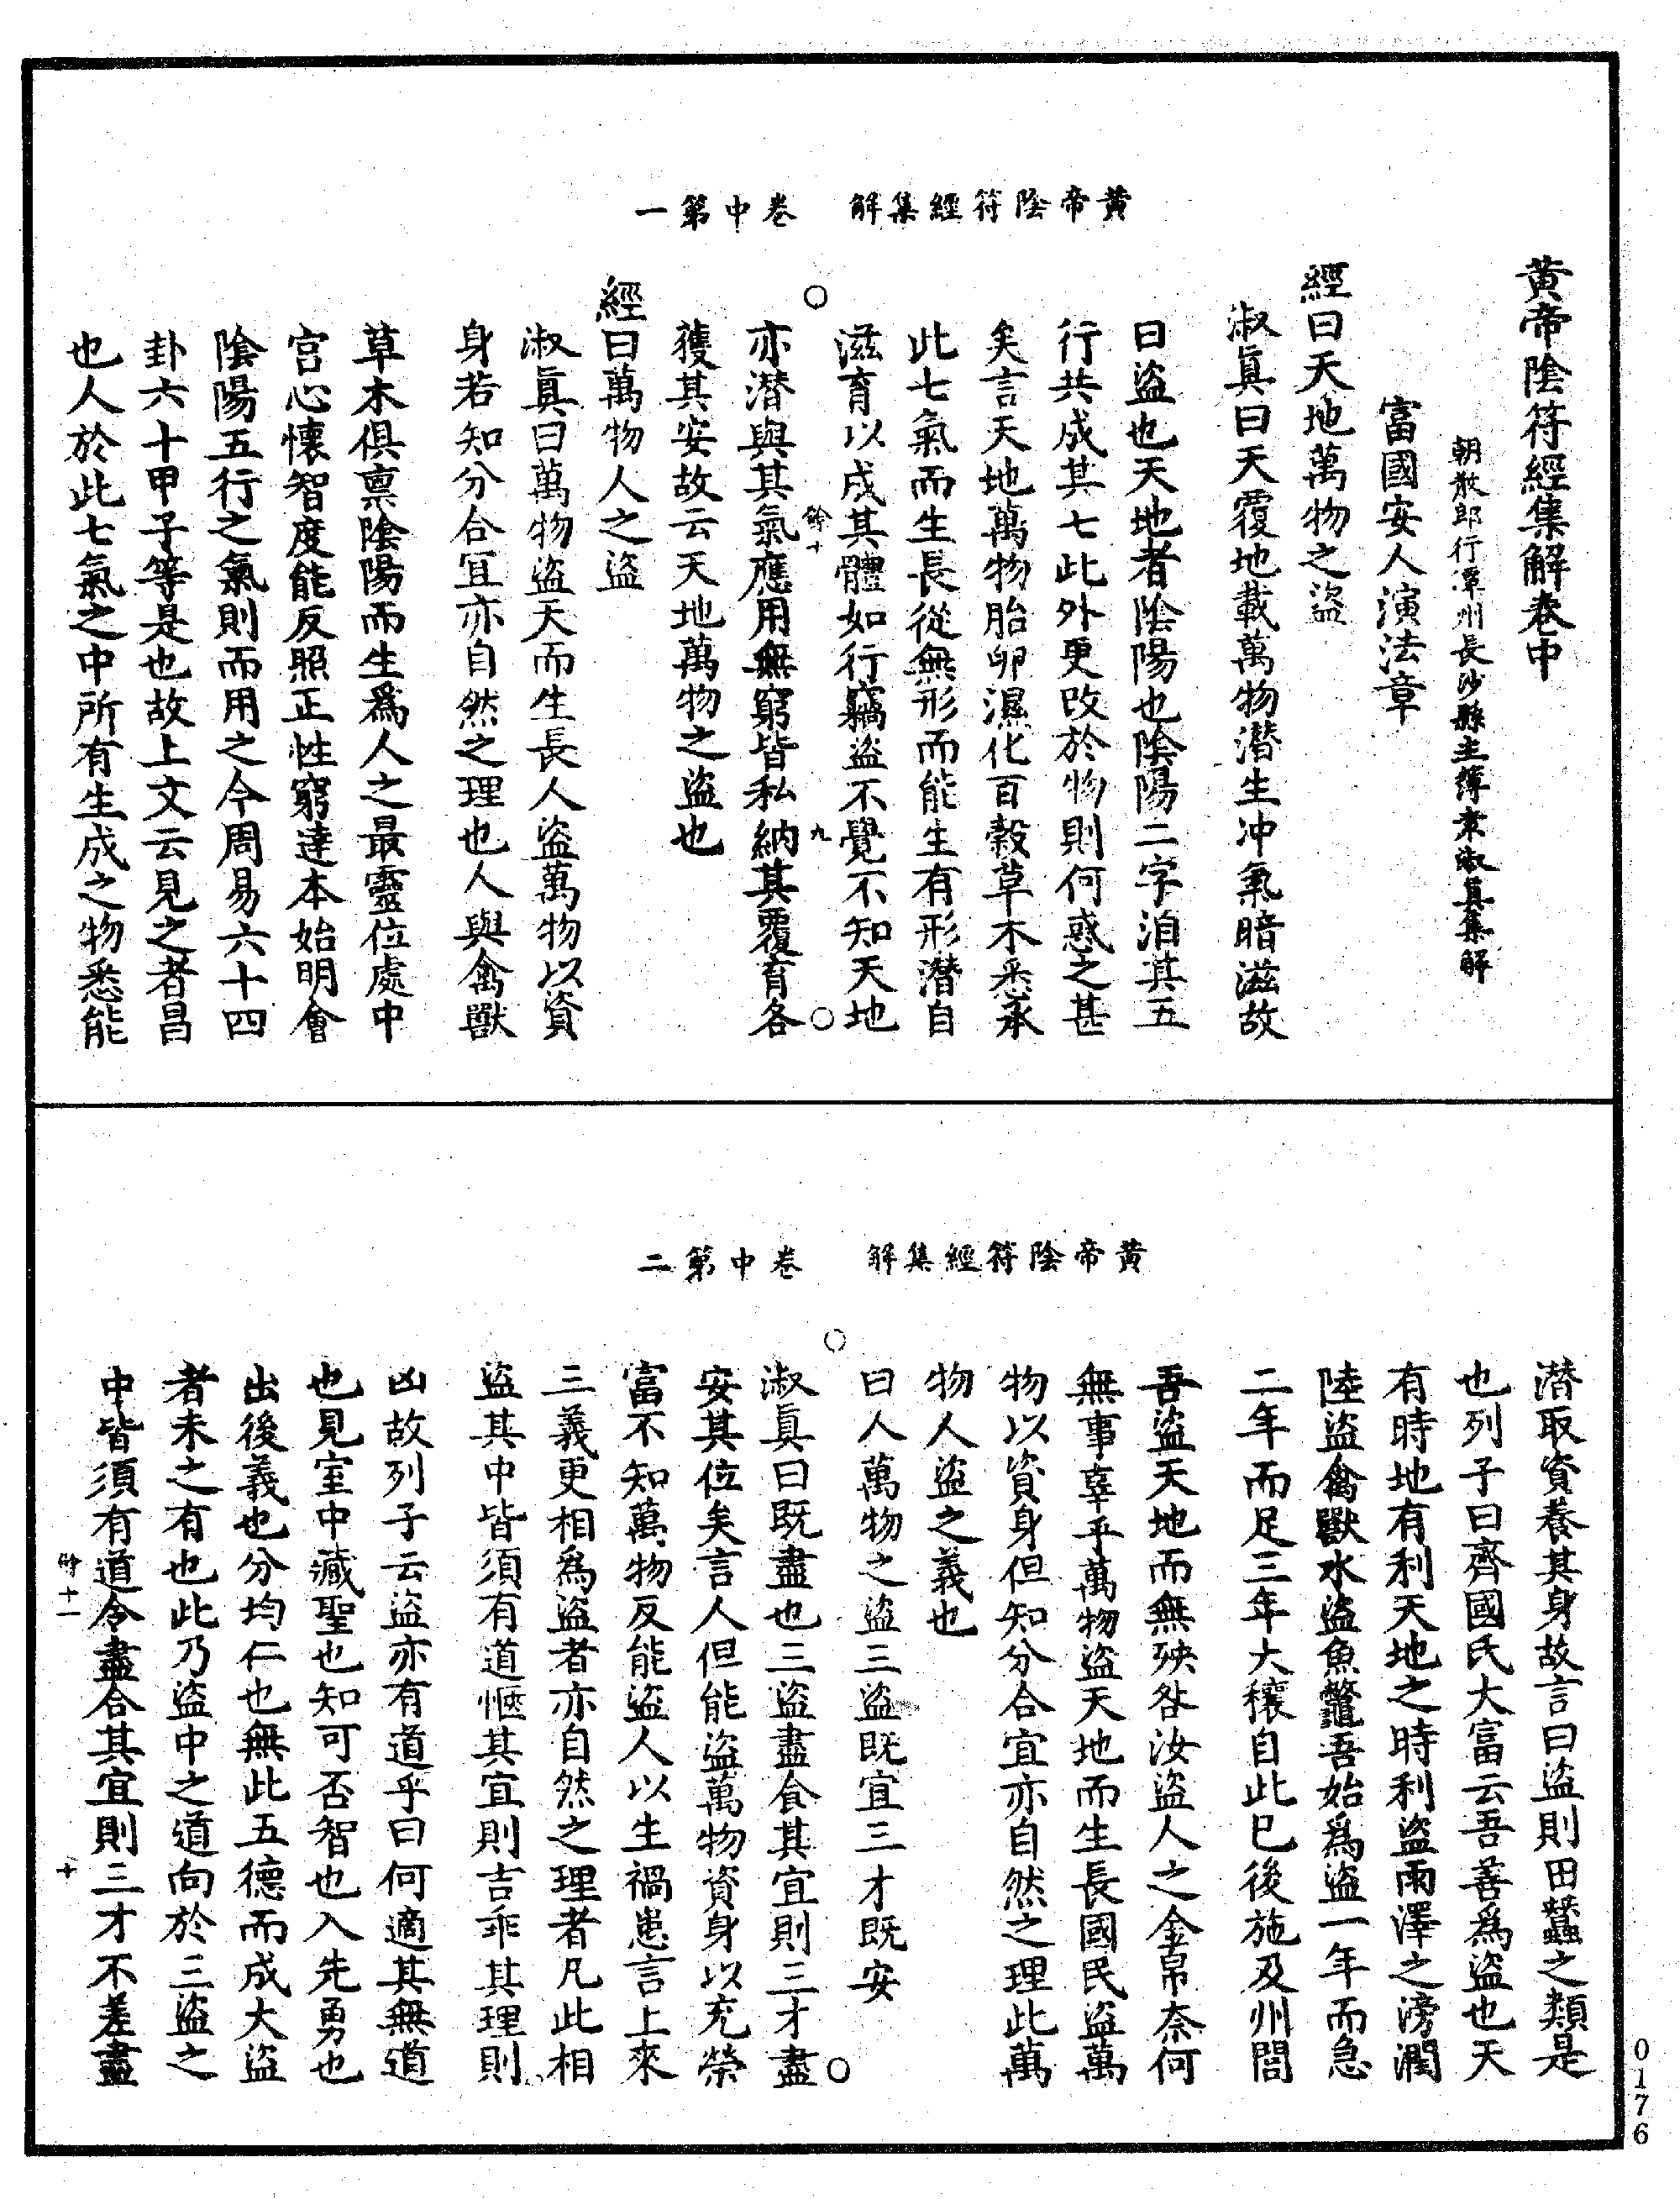 黃帝陰符經集解　卷中第一
黃帝陰符經集解卷中
朝散郎行潭州長沙縣主簿袁淑真集解
富國安人演法章
經曰天地萬物之盜
淑眞曰天覆地載萬物潛生冲氣暗滋故
曰盜也天地者陰陽也陰陽二字洎其五
行共成其七此外更改於物則何惑之甚
矣言天地萬物胎卵濕化百穀草木悉承
此七氣而生長從無形而能生有形潛自
滋育以成其體如行竊盜不覺不知天地
餘十
九
亦潛與其氣應用無窮皆私納其覆育各
獲其安故云天地萬物之盜也
經曰萬物人之盜
淑眞曰萬物盜天而生長人盜萬物以資
身若知分合宜亦自然之理也人與禽獸
草木俱稟陰陽而生爲人之最靈位處中
宮心懷智度能反照正性窮達本始明會
陰陽五行之氣則而用之今周易六十四
卦六十甲子等是也故上文云見之者昌
也人於此七氣之中所有生成之物悉能
黃帝陰符經集解　卷中第二
潛取資養其身故言曰盜則田蠶之類是
也列子曰齊國氏大富云吾善爲盜也天
有時地有利天地之時利盜雨澤之滂潤
陸盜禽獸水盜魚鼈吾始爲盜一年而急
二年而足三年大穰自此已後施及州閭
吾盜天地而無殃咎汝盜人之金帛奈何
無事辜乎萬物盜天地而生長國民盜萬
物以資身但知分合宜亦自然之理此萬
物人盜之義也
曰人萬物之盜三盜既宜三才既安
淑眞曰既盡也三盜盡合其宜則三才盡
安其位矣言人但能盜萬物資身以充榮
富不知萬物反能盜人以生禍患言上來
三義更相爲盜者亦自然之理者凡此相
盜其中皆須有道愜其宜則吉乖其理則
凶故列子云盜亦有道乎曰何適其無道
也見室中藏聖也知可否智也入先勇也
出後義也分均仁也無此五德而成大盜
者未之有也此乃盜中之道向於三盜之
中皆須有道令盡合其宜則三才不差盡
餘十一
十
0176